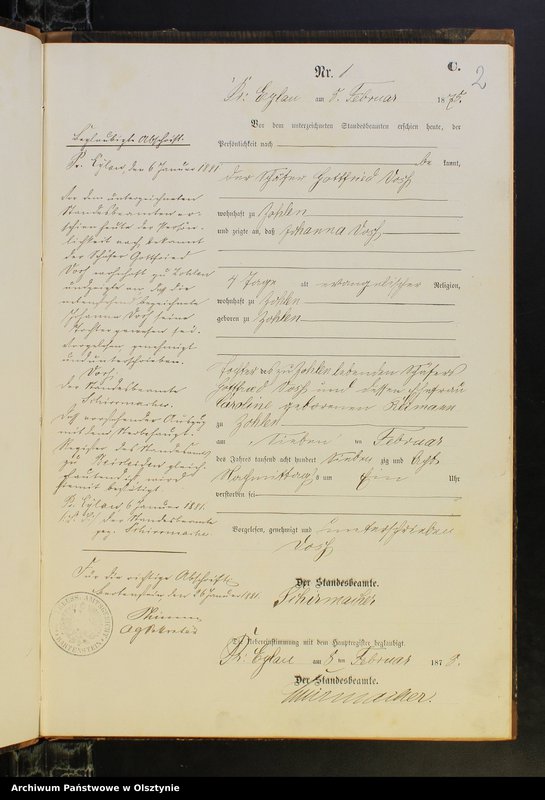 Nr. 1
C.
2
Pr. Eylau am 8. Februar 1878.
Vor dem unterzeichneten Standesbeamten erschien heute, der
Persönlichkeit nach
be kannt,
der Schäfer Gottfried
wohnhaft zu Zohlen
und zeigte an, daß Johanna
4 Tage alt evangelischer Religion,
wohnhaft zu Zohlen
geboren zu Zohlen
Tochter des zu Zohlen lebenden Schäfers
Gottfried und dessen Ehefrau
Caroline geborenen
zu Zohlen
am sieben ten Februar
des Jahres tausend acht hundert sieben zig und acht
Nachmittags um Ein Uhr
verstorben sei
Vorgelesen, genehmigt und unterschrieben
Der Standesbeamte.
Schirmacher
Die Uebereinstimmung mit dem Hauptregister beglaubigt.
Pr. Eylau am 8 ten Februar 1878.
Der Standesbeamte.
Schirmacher.
Beglaubigte Abschrift.
Pr. Eylau, den 6 Januar 1881
Vor dem unterzeichneten
Standesbeamten er-
schien heute der Persön-
lichkeit nach bekannt
der Schäfer Gottfried
wohnhaft zu Zohlen
und zeigte an, daß die
nebenstehend bezeichnete
Johanna seine
Tochter gewesen sei.
Vorgelesen genehmigt
und unterschrieben.
Der Standesbeamte
Schirrmacher.
Daß vorstehender Auszug
mit dem Sterbe-Haupt-
Register des Standesamts
zu gleich-
lautend ist, wird
hiermit bestätigt.
Pr. Eylau, 6 Januar 1881.
der Standesbeamte
gez. Schirrmacher.
Für die richtige Abschrift
Bartenstein, den 26 Januar 1881.
Archiwum Państwowe w Olsztynie